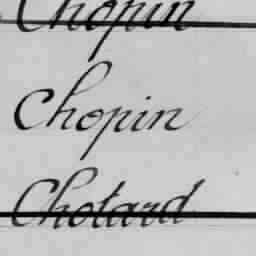 Chopin
Chopin
Chotard